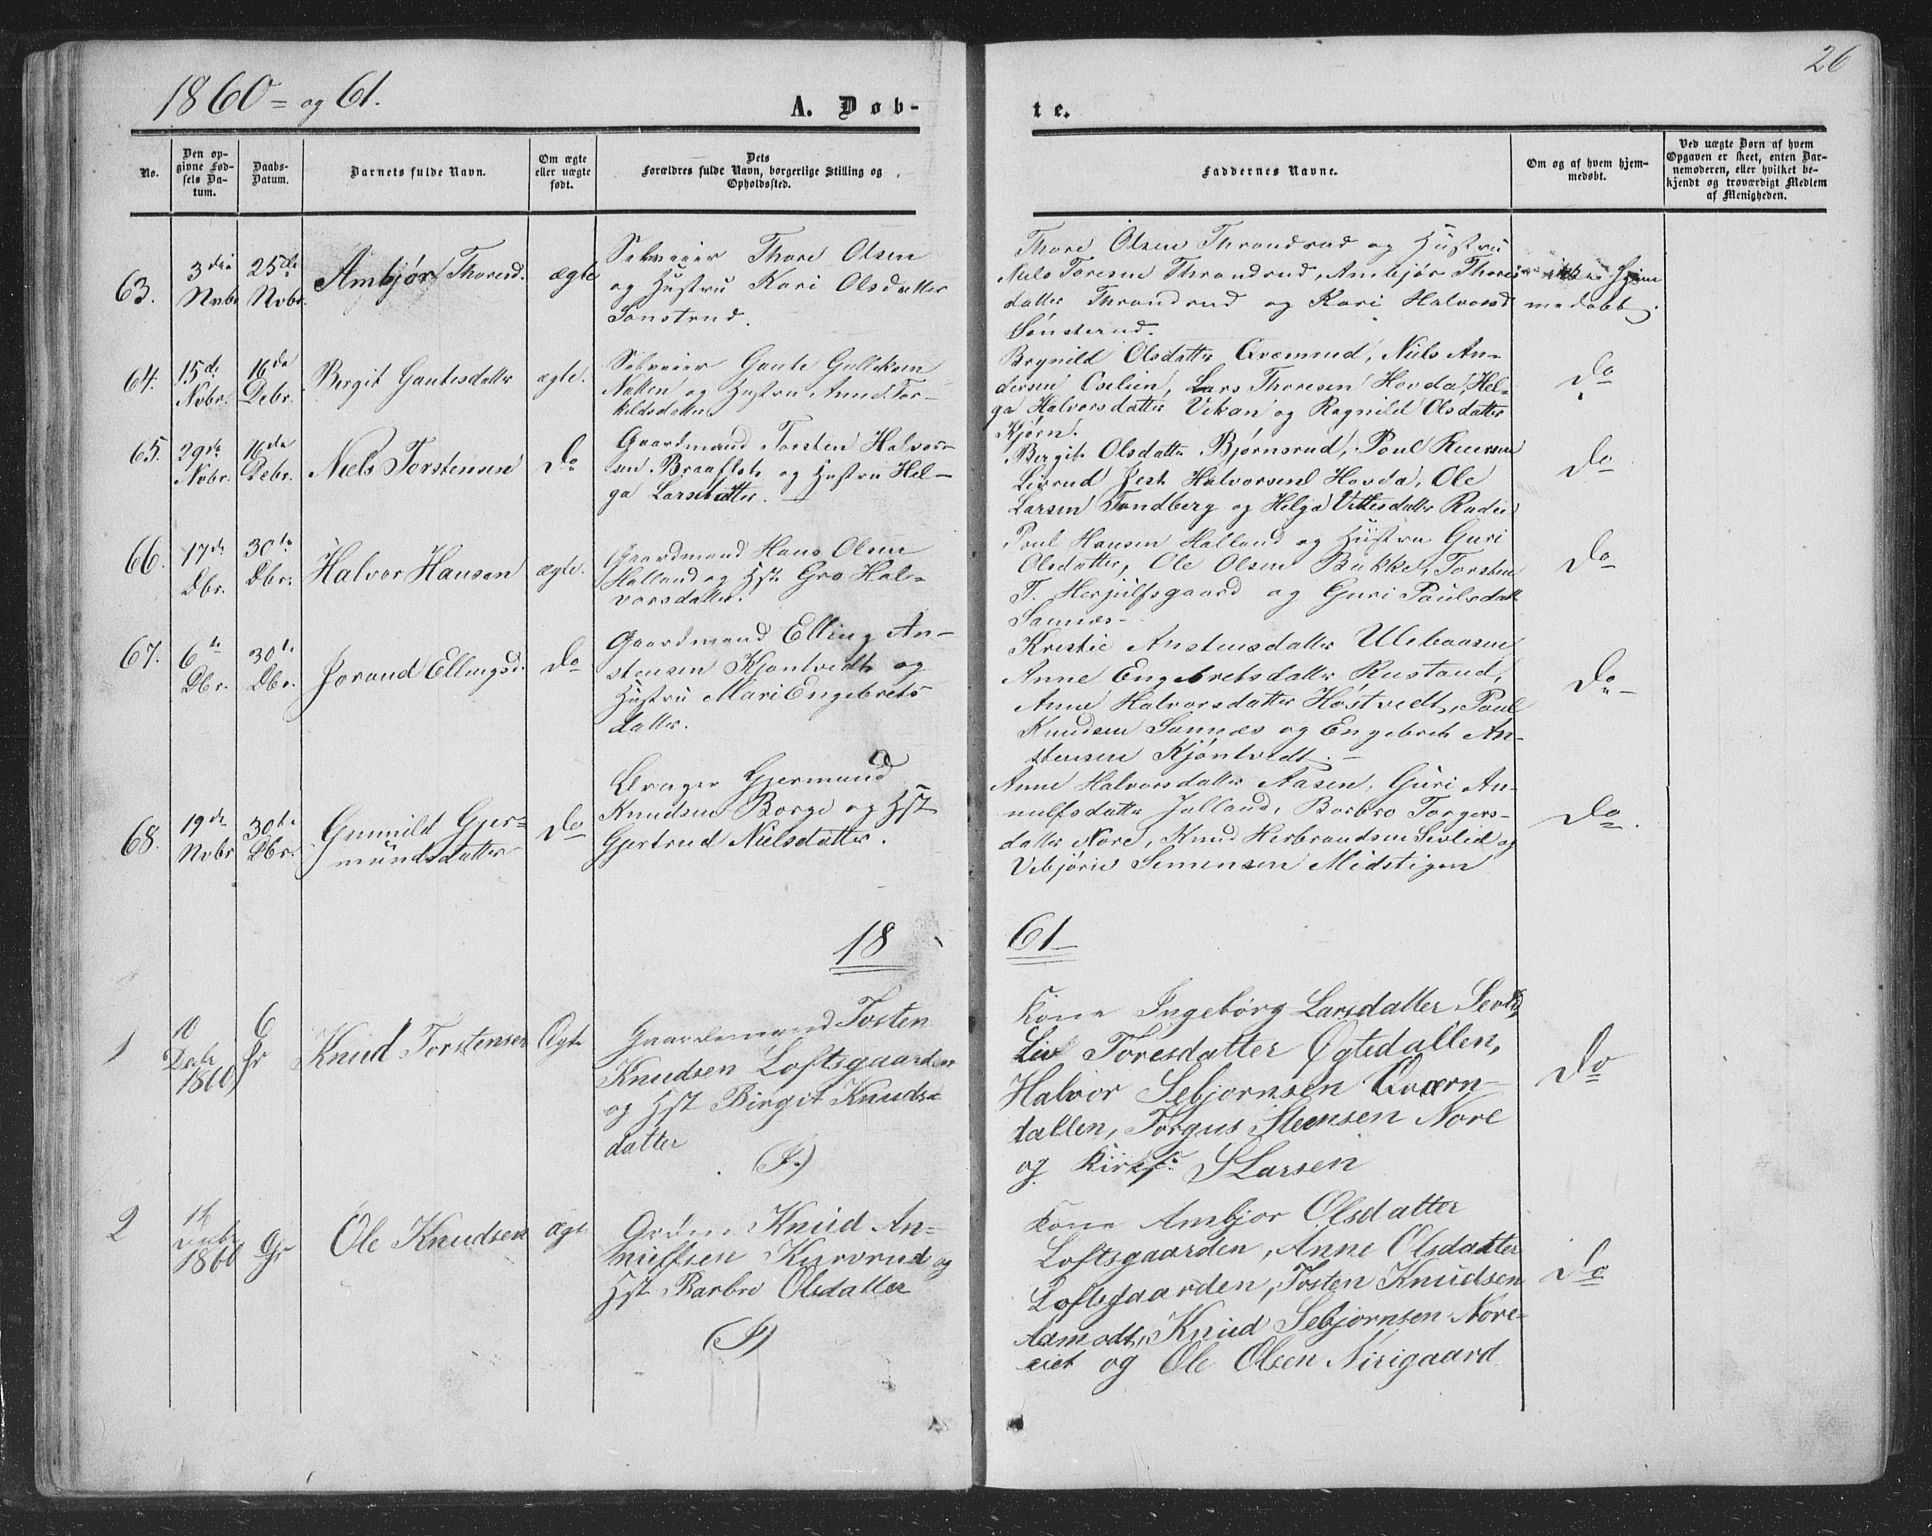 1860 = og 61.
A. Døb-
te.
26
No.
Den op-
givne Fød-
sels Da-
tum.
Daabs-
Datum.
Barnets fulde Navn.
Om ægte
eller uægte
født.
Dets
Forældres fulde Navn, borgerlige Stilling og
Opholdssted.
Faddernes Navne.
Om og af hvem hjem-
medøbt.
Ved uægte Børn af hvem
Opgaven er skeet, enten Bar-
nemoderen, eller hvilket be-
kjendt og troværdigt Medlem
af Menigheden.
63.
3die
Nvbr
25de
Nvbr.
Ambjør Thoresd.
ægte
Selveier Thore Olsen
og Hustru Kari Olsdatter
Thore Olsen Throndrud og Hustru
Niels Toresen Throndrud, Ambjør Thores-
datter Throndrud og Kari Halvorsd
Sønsterud.
hjem
medøbt.
64.
15de
Nvbr.
16de
Debr.
Bergit Gautesdatter
ægte.
Selveier Gaute Gulliksen
og Hustru Anne Tor-
kildsdatter
Brynild Olsdatter Niels An-
dersen Lars Thoresen Hovda, Hel-
ga Halvorsdatter Vikan og Ragnild Olsdatter
Kjørn.
Do
65.
29de
Nvbr.
16de
Debr.
Niels Torstensen
Do
Gaardmand Torsten Halvor-
sen Braaflat og Hustru Hel-
ga Larsdatter.
Bergit Olsdatter Bjørnsrud, Poul
Halvorsen Hovda, Ole
Larsen Tandberg og Helga
Do
66.
17de
Dbr.
30te
Dbr.
Halvor Hansen
ægte.
Gaardmand Hans Olsen
Halland og Hst. Gro Hal-
vorsdatter.
Poul Hansen Halland og Hustru Guri
Olsdatter, Ole Olsen Bakke, Torsten
T. Herjulfsgaard og Guri Paulsdatt.
Sannæs-
Do
67.
6te
Dbr.
30te
Dbr.
Jorand Ellingsd.
Do
Gaardmand Elling An-
stensen Kjøntvedt og
Hustru Mari Engebrets
datter.
Kristie Anstensdatter Ulebaasen
Anne Engebretsdatter Rustand,
Anne Halvorsdatter Høstvedt, Paul
Knudsen Sannæs og Engebret An-
stensen Kjøntvedt.-
Do-
68.
19de
Nvbr
30te
Dbr.
Gunnild Gjer-
mundsdatter
Do
Bruger Gjermund
Knudsen Borge og Hst
Gjertrud Nielsdatter.
Anne Halvorsdatter Aasen, Guri An-
nulfsdatter Jalland, Barbro Torgers-
datter Nore, Knud Herbrandsen Sevlid og
Vebjørn Simensen Midstigen
Do.
18
61
1
10
Debr
1860
6
Jr
Knud Torstensen
Ægte
Gaardemand Tosten
Knudsen Loftsgaarden
og Hst Birgit Knuds-
datter
(J.)
Kone Ingebørg Larsdatter Sevlid
Liv Toresdatter Øgtedallen,
Halvor Sebjørnsen Qværn-
dallen, Torgus Steensen Nore
og Kirkes. S Larsen
Do
2
Debr
1860
Ole Knudsen
ægte
Knud An-
nulfsen Kurvrud og
Hst Barbro Olsdatter
(J)
Kone Ambjør Olsdatter
Loftsgaarden, Anne Olsdatter
Loftsgaarden, Tosten Knudsen
Aamodt, Knud Sebjørnsen Nore-
eiet og Ole Olsen Nirigaard
Do